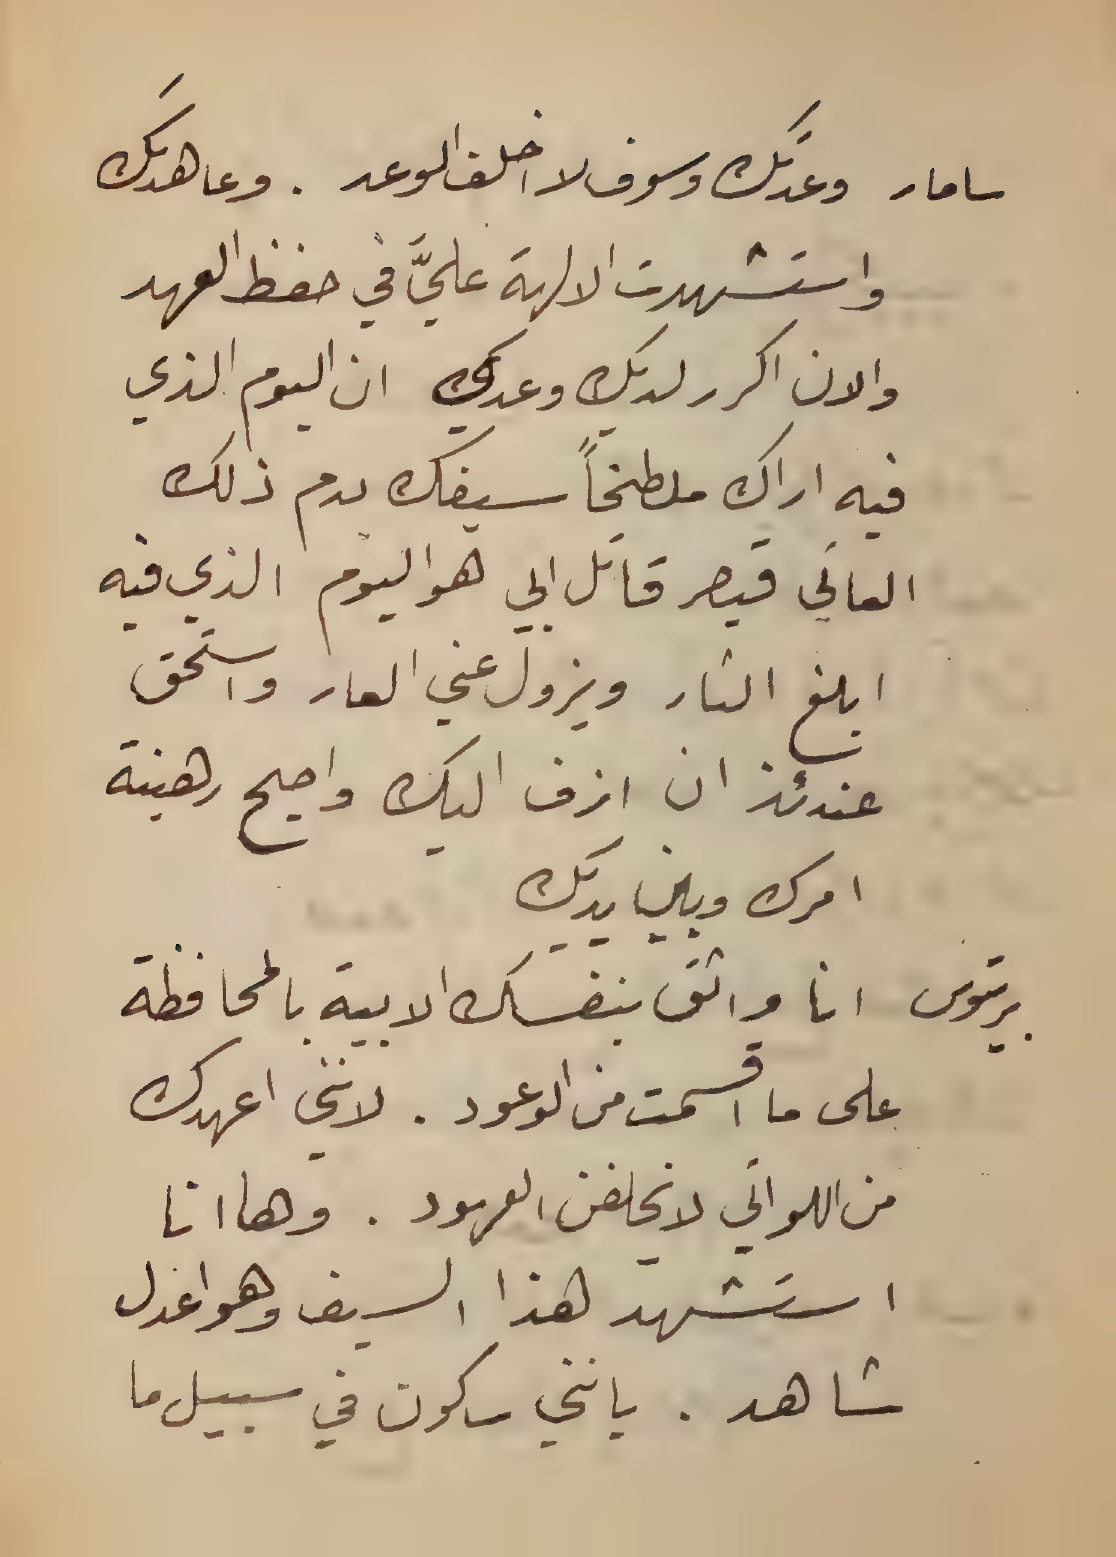 سامار وعدتَك وسوف لا اخلف الوعد . وعاهدتَك
واستشهدت الالهة عليَّ في حفظ العهد
والان اكرر لديك وعدي ان اليوم الذي
فيه اراك ملطخاً سيفك بدم ذلك
العاتي قيصر قاتل ابي هو اليوم الذي فيه
ابلغ الثار ويزول عني العار واستحق
عندئذ ان ازف اليك واصبح رهينة
امرك وبين يديك
برتوس انا واثق بنفسك الابية بالمحافظة
على ما اقسمت من الوعود . لانني اعهدك
من اللواتي لا يخلفن العهود . وها انا
استشهد هذا السيف وهو اعدل
شاهد . بانني ساكون في سبيل ما